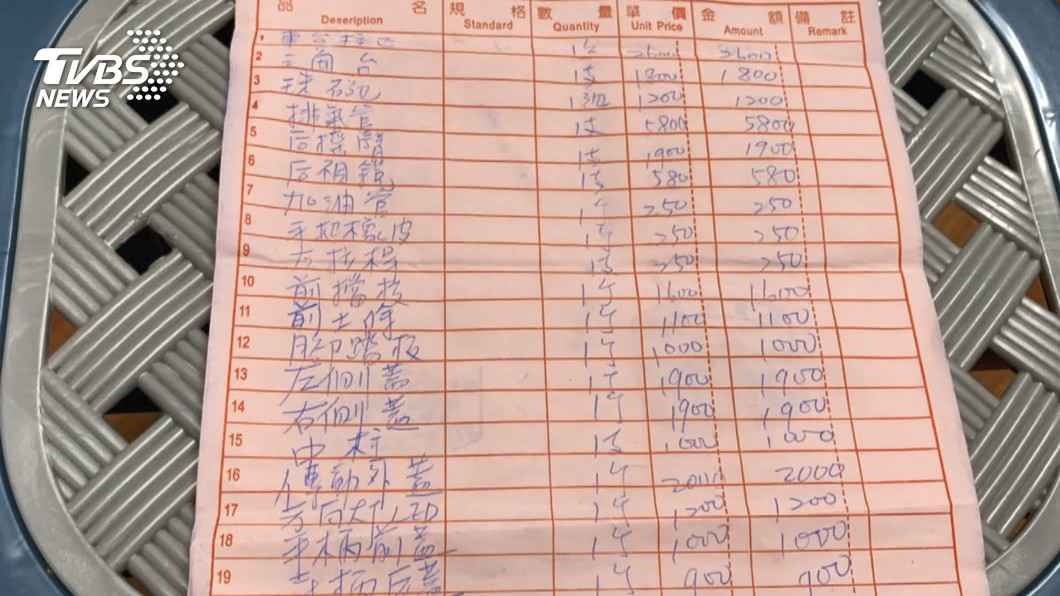 TVBS
NEWS
品 名 規 格 數 量 單 價 金 額 備 註
Description Standard Quantity Unit Price Amount Remark
1 1
2 三角台 1支 1800 1800
3 珠碗 1組 1200 1200
4 排氣管 1支 5800 5800
5 1支 1900 1900
6 后視鏡 1支 580 580
7 加油管 1个 250 250
8 手把橡皮 1个 250 250
9 1支 350 350
10 前擋板 1个 1600 1600
11 前土除 1个 1100 1100
12 腳踏板 1个 1000 1000
13 左側蓋 1个 1900 1900
14 右側蓋 1个 1900 1900
15 中柱 1支 1000 1000
16 傳動外蓋 1个 2000 2000
17 方向灯LED 1个 1200 1200
18 手柄前蓋 1个 1000 1000
19 手柄后蓋 1个 900 900